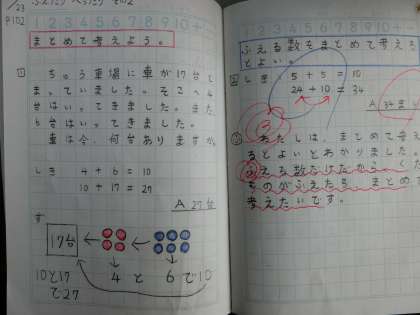 23
P102
ふえたり へったり その2
1 2 3 4 5 6 7 8 9 10 +
まとめて考えよう。
① ちゅう車場に車が17台と
まっていました。そこへ4
台はいってきました。また
6台はいってきました。
車は今、何台ありますか。
しき 4 + 6 = 10
10 + 17 = 27
A 27台
ず
17台
4 と 6 で10
10と17
で27
1 2 3 4 5 6 7 8 9 10
ふえる数をまとめて考えると
とよい。
② しき 5 + 5 = 10
24 + 10 = 34
A 34
③ わたしは、まとめて考え
るとよいとわかりました。
ふえる数だけだから
ものがふえたら まとめて
考えたいです。